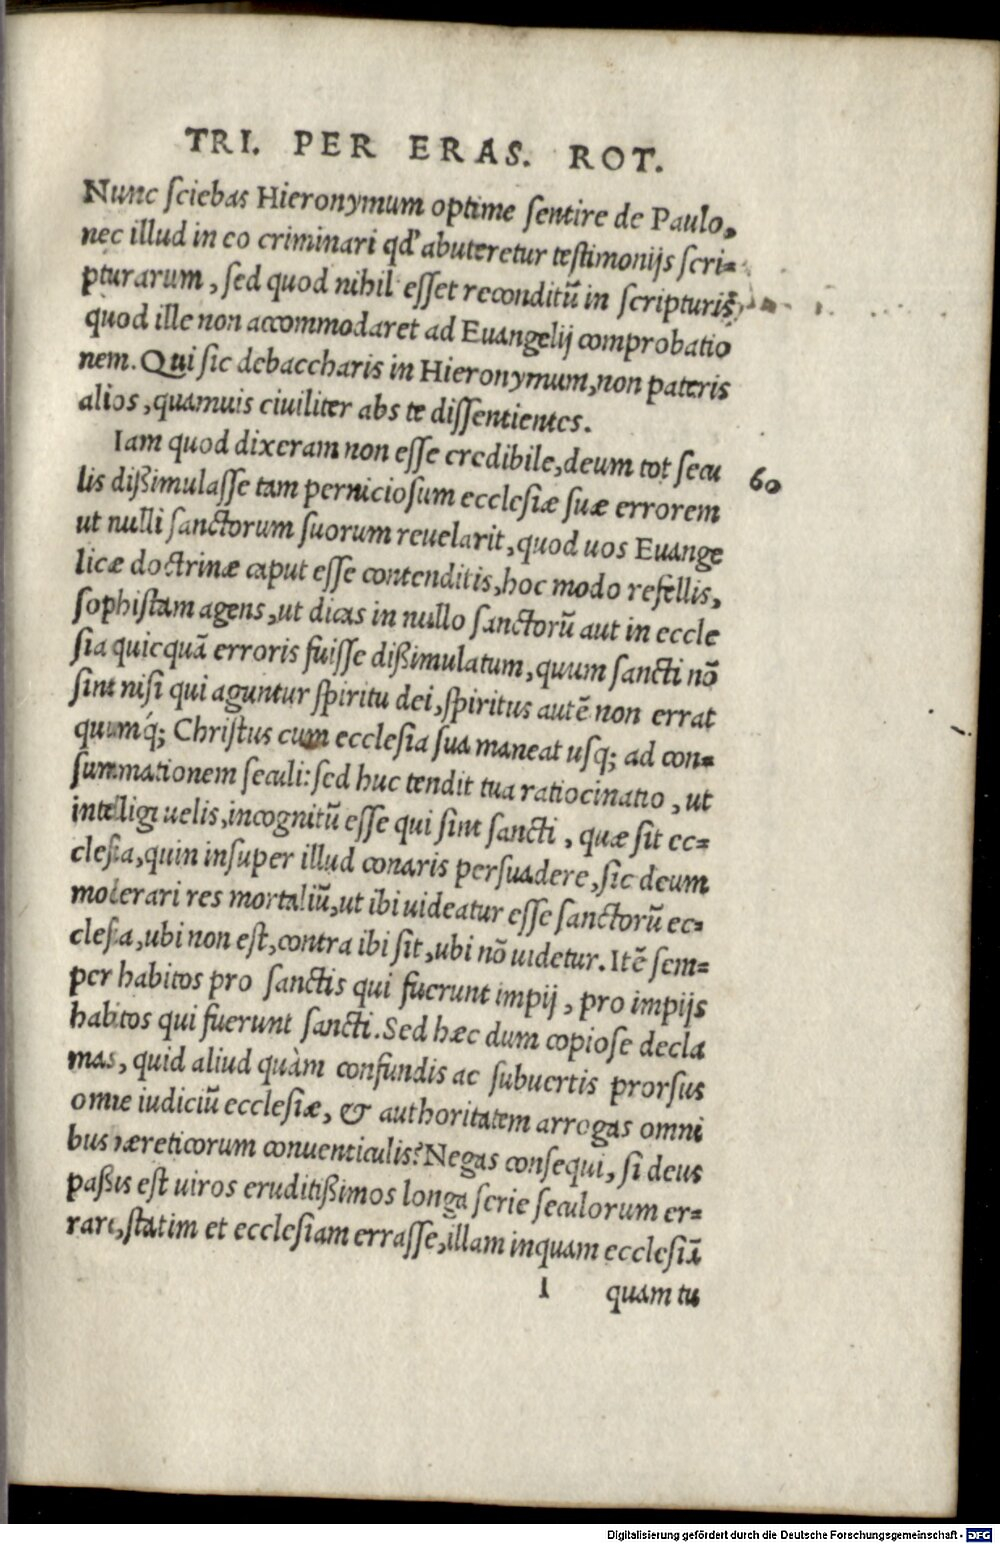 TRI. PER ERAS. ROT.
Nunc ſciebas Hieronymum optime ſentire de Paulo,
nec illud in eo criminari qđ abuteretur teſtimonijs ſcri=
pturarum, ſed quod nihil eſſet reconditū in ſcripturis,
quod ille non accommodaret ad Euangelij comprobatio
nem. Qui ſic debaccharis in Hieronymum, non pateris
alios, quamuis ciuiliter abs te diſſentientes.
Iam quod dixeram non eſſe credibile, deum tot ſecu
60
lis dißimulaſſe tam pernicioſum eccleſiæ ſuæ errorem
ut nulli ſanctorum ſuorum reuelarit, quod uos Euange
licæ doctrinæ caput eſſe contenditis, hoc modo refellis,
ſophiſtam agens, ut dicas in nullo ſanctorū aut in eccle
ſia quicquā erroris fuiſſe dißimulatum, quum ſancti nō
ſint niſi qui aguntur ſpiritu dei, ſpiritus autē non errat
quumq́; Chriſtus cum eccleſia ſua maneat uſq; ad con=
ſummationem ſeculi: ſed huc tendit tua ratiocinatio, ut
intelligi uelis, incognitū eſſe qui ſint ſancti, quæ ſit ec=
cleſia, quin inſuper illud conaris perſuadere, ſic deum
moderari res mortaliū, ut ibi uideatur eſſe ſanctorū ec=
cleſia, ubi non eſt, contra ibi ſit, ubi nō uidetur. Itē ſem=
per habitos pro ſanctis qui fuerunt impij, pro impijs
habitos qui fuerunt ſancti. Sed hæc dum copioſe decla
mas, quid aliud quàm confundis ac ſubuertis prorſus
omne iudiciū eccleſiæ, & authoritatem arrogas omni
bus hæreticorum conuenticulis? Negas conſequi, ſi deus
paßus eſt uiros eruditißimos longa ſerie ſeculorum er=
rare, ſtatim et eccleſiam erraſſe, illam inquam eccleſiā
l quam tu
Digitalisierung gefördert durch die Deutsche Forschungsgemeinschaft - DFG